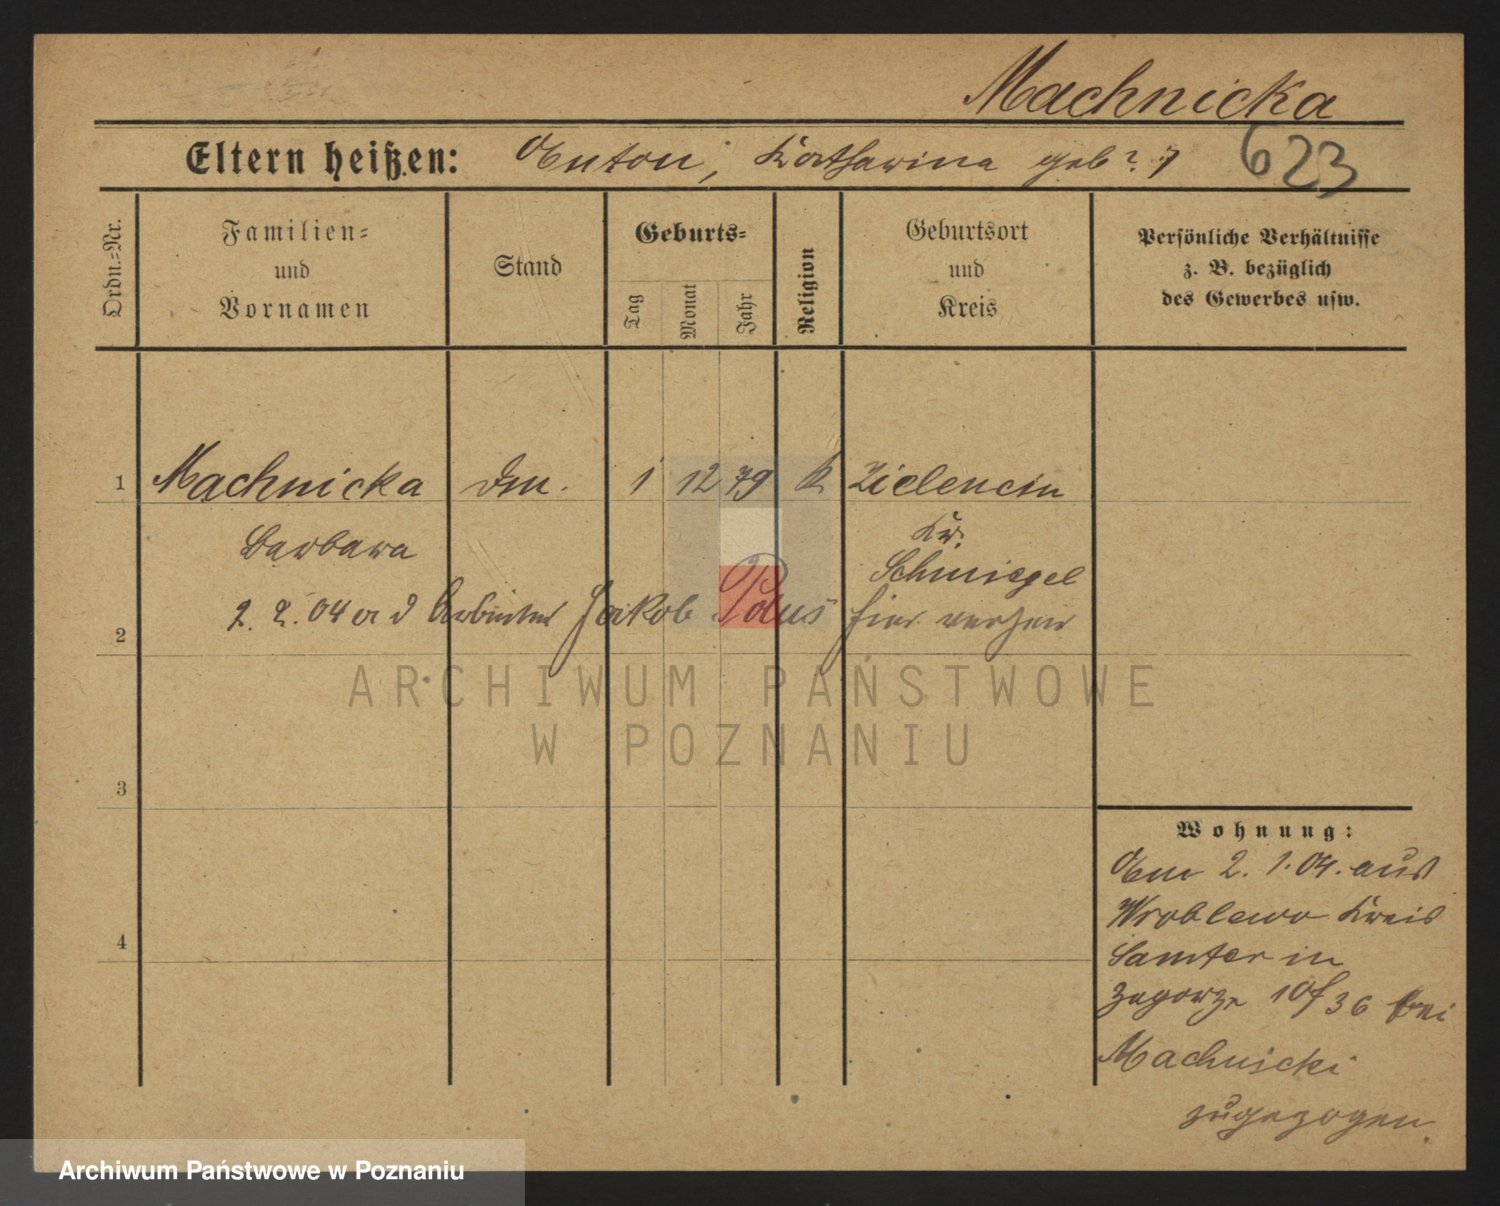 Machnicka
Eltern heißen: Anton, Katharina geb? 7
623
Ordn.-Nr.
Familien-
und
Vornamen
Stand
Geburts-
Tag
Monat
Jahr
Religion
Geburtsort
und
Kreis
Persönliche Verhältnisse
z. B. bezüglich
des Gewerbes usw.
1 Machnicka 1 12 79 K Zielencin
Barbara Kr.
Schmiegel
2. 2. 04 a d Arbeiter Jakob Paus hier verheir
2
ARCHIWUM PAŃSTWOWE
W POZNANIU
3
4
Wohnung:
Am 2. 1. 04. aus
Wroblewo Kreis
Samter in
Zagorze 36 bei
Machnicki
zugezogen.
Archiwum Państwowe w Poznaniu